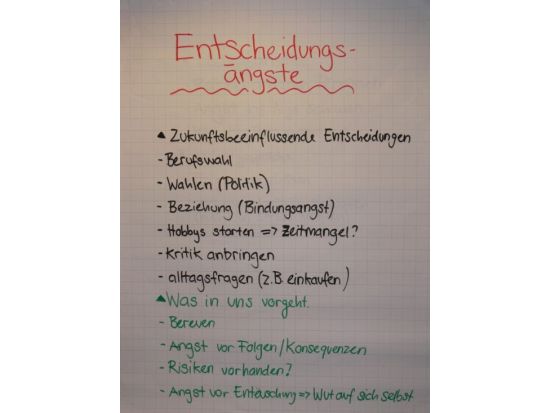 Entscheidungs-
ängste
▲ Zukunftsbeeinflussende Entscheidungen
- Berufswahl
- Wahlen (Politik)
- Beziehung (Bindungsangst)
- Hobbys starten => Zeitmangel?
- Kritik anbringen
- alltagsfragen (z.B. einkaufen)
▲ Was in uns vorgeht.
- Bereuen
- Angst vor Folgen/Konsequenzen
- Risiken vorhanden?
- Angst vor Entäuschung => Wut auf sich selbst